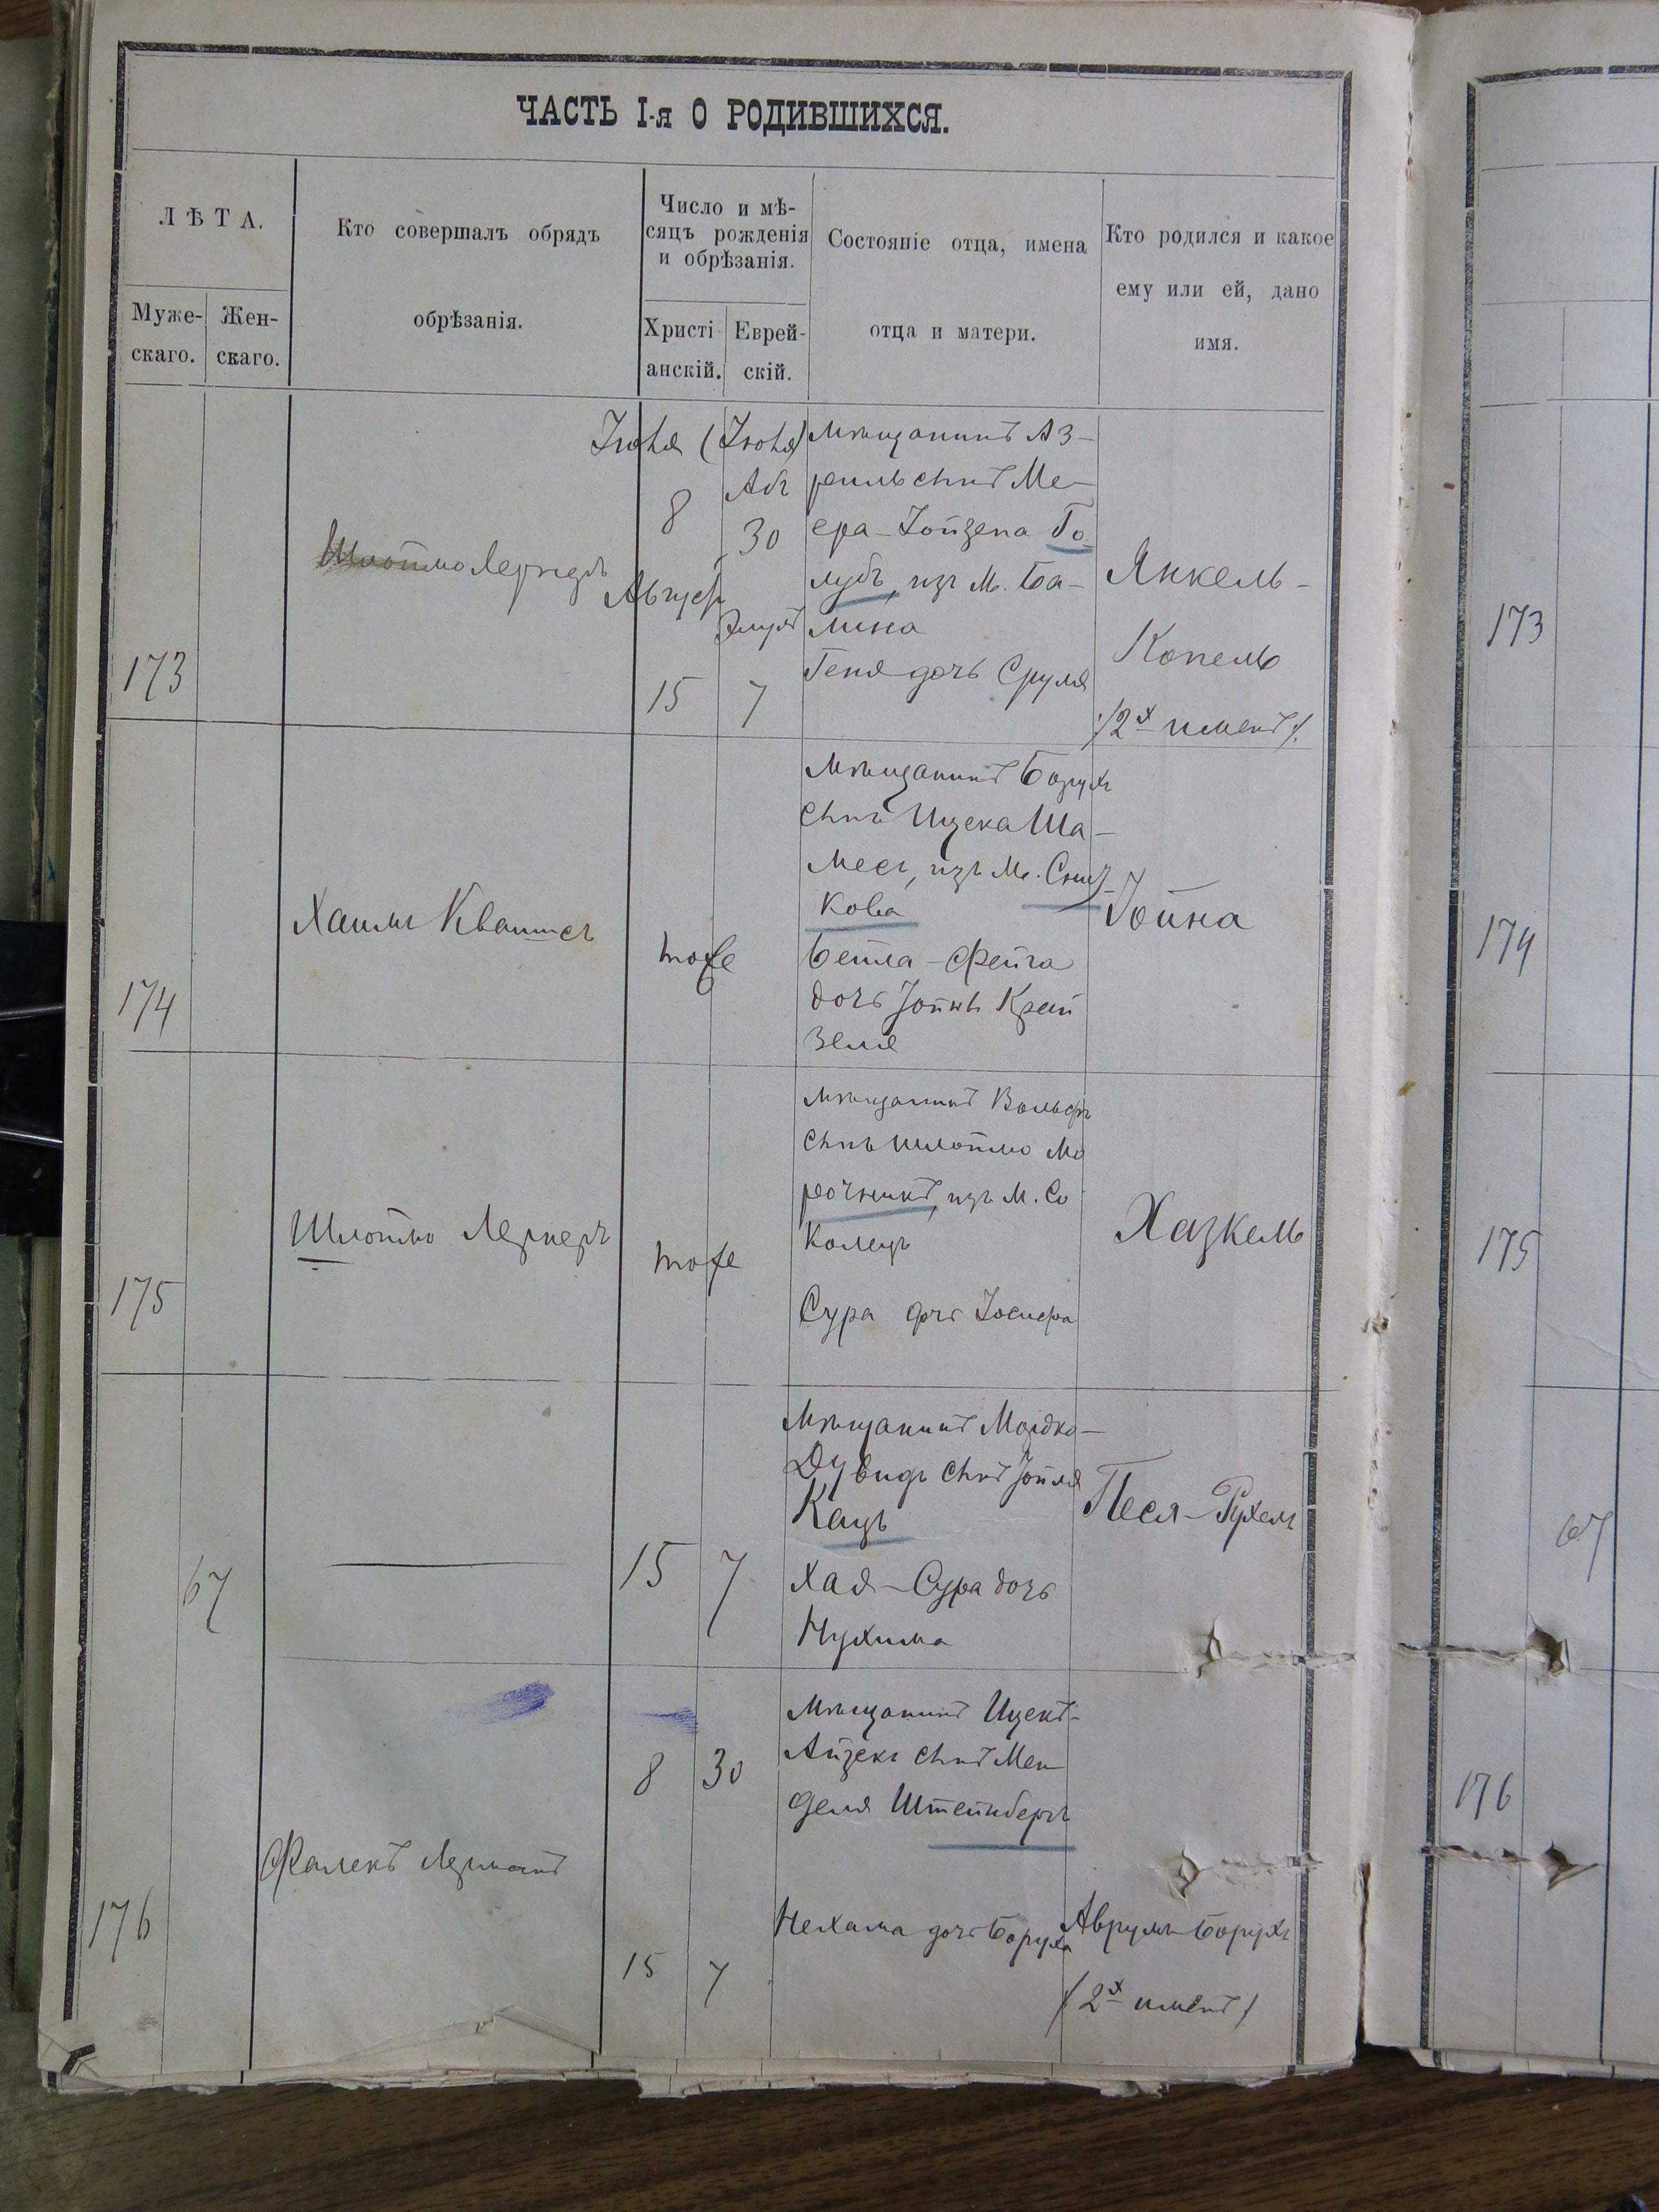 ЧАСТЬ I-я О РОДИВШИХСЯ.
ЛѢТА.
Муже-
скаго.
Жен-
скаго.
Кто совершалъ обрядъ
обрѣзанія.
Число и мѣ-
сяцъ рожденія
и обрѣзанія.
Христі
анскій.
Еврей-
скій.
Состояніе отца, имена
отца и матери.
Кто родился и какое
ему или ей, дано
имя.
173
Шлоймо Лернеръ
Іюля
8
Август
15
(Іюля)
Абъ
30
Элулъ
7
Мѣщанинъ Аз-
рииль сынъ Ме-
ера-Іойзепа Го-
лубъ, изъ м. Ба-
лина
Геня дочь Сруля
Янкель-
Копель
/2х именъ/.
173
174
Хаимъ Квитнеръ
тоже
Мѣщанинъ Борухъ
сынъ Ицека Ша-
месъ, изъ м. Снит-
кова
Бейла-Фейга
дочь Іойны Крей
зеля
Іойна
174
175
Шлоймо Лернеръ
тоже
Мѣщанинъ Вольфъ
сынъ Шлоймо Мо
реочникъ, изъ м. Со
колецъ
Сура дочь Іосифа
Хазкель
175
67
15
7
Мѣщанинъ Мордко-
Дувидъ сынъ Іойля
Кацъ
Хая-Сура дочь
Нухима
Песя-Рухель
67
176
Фалекъ Лерманъ
8
30
15
7
Мѣщанинъ Ицекъ-
Айзекъ сынъ Мен
деля Штейнбергъ
Нехама дочь Боруха
Аврумъ-Борухъ
/2х именъ/
176